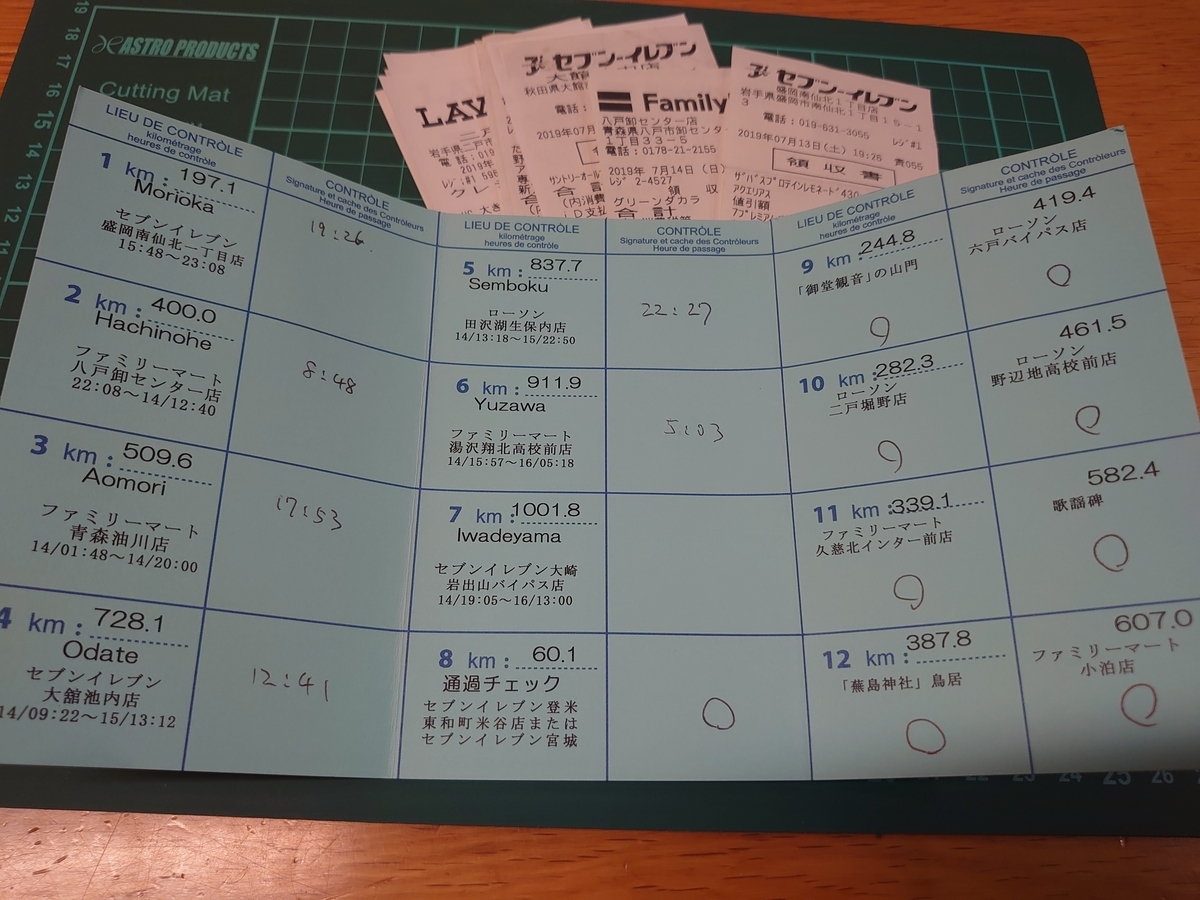 ASTRO PRODUCTS
Cutting Mat
19
18
17
16
15
14
13
12
LAW
岩手県
セブン-イレブン
秋田県大館
電話：
2019年07月
合計
Family
八戸卸センター店
青森県八戸市卸センタ
1丁目33-5
電話：0178-21-2155
2019年 7月14日（日）
レジ 2-4527
領収
グリーンダカラ
合計
セブン-イレブン
盛岡南仙北1丁目店
岩手県盛岡市南仙北1丁目15-1
3
電話：019-631-3055
レジ#1
2019年07月13日(土) 19:26 責055
領収書
ザバスプロテインレモネード430
アクエリアス
値引額
LIEU DE CONTRÔLE
kilométrage
heures de contrôle
1 km : 197.1
Morioka
セブンイレブン
盛岡南仙北一丁目店
15:48～23:08
2 km : 400.0
Hachinohe
ファミリーマート
八戸卸センター店
22:08～14/12:40
3 km : 509.6
Aomori
ファミリーマート
青森油川店
14/01:48～14/20:00
4 km : 728.1
Odate
セブンイレブン
大舘池内店
14/09:22～15/13:12
CONTRÔLE
Signature et cache des Contrôleurs
Heure de passage
19:26
8:48
17:53
12:41
LIEU DE CONTRÔLE
kilométrage
heures de contrôle
5 km : 837.7
Semboku
ローソン
田沢湖生保内店
14/13:18～15/22:50
6 km : 911.9
Yuzawa
ファミリーマート
湯沢翔北高校前店
14/15:57～16/05:18
7 km : 1001.8
Iwadeyama
セブンイレブン大崎
岩出山バイパス店
14/19:05～16/13:00
8 km : 60.1
通過チェック
セブンイレブン登米
東和町米谷店または
セブンイレブン宮城
CONTRÔLE
Signature et cache des Contrôleurs
Heure de passage
22:27
5:03
LIEU DE CONTRÔLE
kilométrage
heures de contrôle
9 km : 244.8
「御堂観音」の山門
10 km : 282.3
ローソン
二戸堀野店
11 km : 339.1
ファミリーマート
久慈北インター前店
12 km : 387.8
「蕪島神社」鳥居
CONTRÔLE
Signature et cache des Contrôleurs
Heure de passage
419.4
ローソン
六戸バイパス店
461.5
ローソン
野辺地高校前店
582.4
歌謡碑
607.0
ファミリーマート
小泊店
22 23 24 25 26